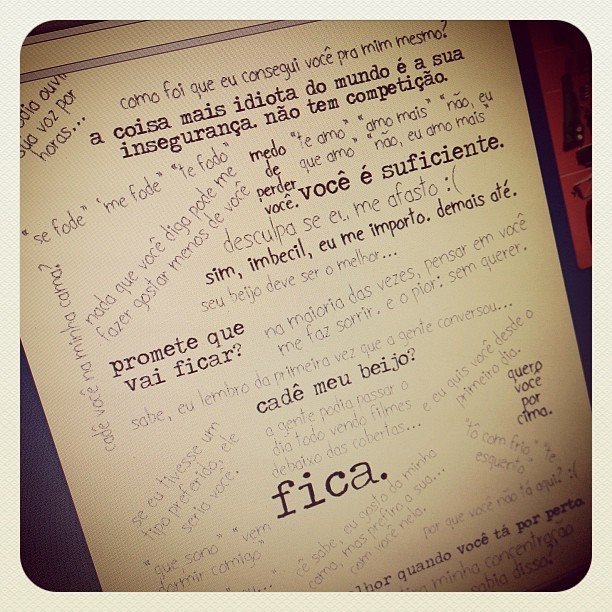 ouvir
sua voz por
horas...
como foi que eu consegui você pra mim mesmo?
a coisa mais idiota do mundo é a sua
insegurança. não tem competição.
"se fode" "me fode" "te fodo"
medo
de
perder
você.
"te amo" "amo mais" "não, eu
que amo" "não, eu amo mais"
você é suficiente.
nada que você diga pode me
fazer gostar menos de você
desculpa se eu me afasto :(
sim, imbecil, eu me importo. demais até.
seu beijo deve ser o melhor...
cadê você na minha cama?
promete que
vai ficar?
na maioria das vezes, pensar em você
me faz sorrir. e o pior: sem querer.
sabe, eu lembro da primeira vez que a gente conversou...
cadê meu beijo?
quero
você
por
cima.
se eu tivesse um
tipo preferido, ele
seria você.
a gente podia passar o
dia todo vendo filmes
debaixo das cobertas...
e eu quis você desde o
primeiro dia.
fica.
"tô com frio" "te
esquento"
"que sono" "vem
dormir comigo"
cê sabe, eu gosto da minha
cama, mas prefiro a sua...
com você nela.
por que você não tá aqui? :(
lhor quando você tá por perto
minha concentração
sabia disso?